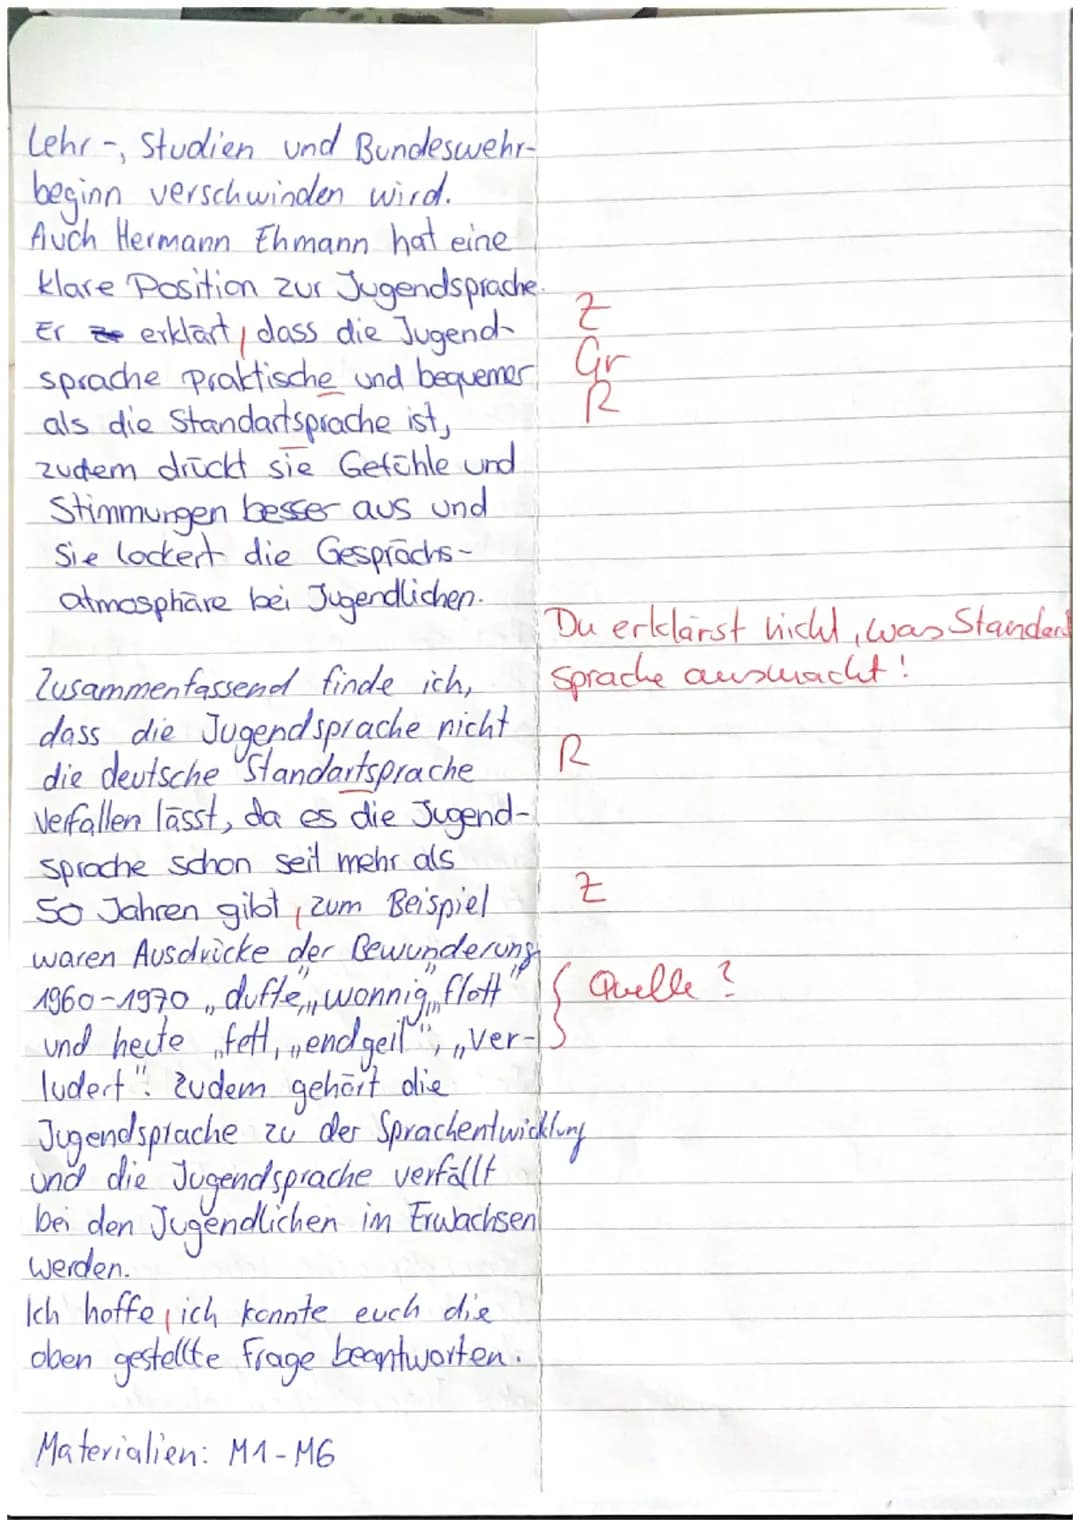 Lehr-, Studien und Bundeswehr-
beginn verschwinden wird.
Auch Hermann Ehmann hat eine
klare Position zur Jugendsprache.
Er erklärt, dass die Jugend-
Z
sprache praktische und bequemer
Gr
als die Standartsprache ist,
R
zudem drückt sie Gefühle und
Stimmungen besser aus und
Sie lockert die Gesprächs-
atmosphäre bei Jugendlichen.
Du erklärst nicht, was Standard
sprache ausmacht!
Zusammenfassend finde ich,
dass die Jugendsprache nicht
die deutsche Standartsprache
R
Verfallen lässt, da es die Jugend-
sprache schon seit mehr als
50 Jahren gibt, zum Beispiel
Z
waren Ausdrücke der Bewunderung
1960-1970 „dufte", „wonnig", „flott"
Quelle?
und heute „fett, „endgeil", „ver-
ludert". Zudem gehört die
Jugendsprache zu der Sprachentwicklung
und die Jugendsprache verfällt
bei den Jugendlichen im Erwachsen
werden.
Ich hoffe, ich konnte euch die
oben gestellte Frage beantworten.
Materialien: M1-M6